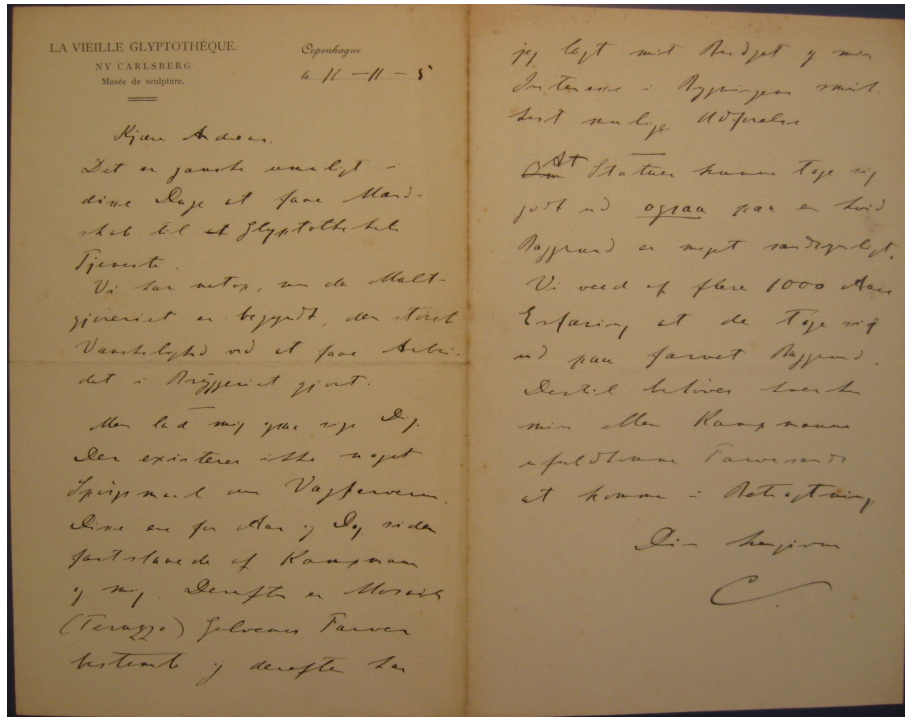 LA VIEILLE GLYPTOTHÈQUE.
NY CARLSBERG
Musée de sculpture.
Copenhague
le 16 – 11 – 5
Kjære Andreas.
Det er ganske umuligt i
disse Dage at faae Mand-
skab til Glyptothekets
Tjeneste.
Vi har netop, nu da Malt-
gjøreriet er begyndt, den størst
Vanskelighd ved at faae Arbei-
det i Bryggeriet gjort.
Men lad mig sige Dig.
Der existerer ikke noget
Spörgsmaal om Vægfarverne.
Disse ere for Aar og Dag siden
fastslaaede af Kampmann
og mig. Derefter er Mosaik
(Terazzo) Gulvenes Farver
bestemte og derefter har
jeg lagt mit Budget og min
Interesse i Bygningens
mulige Udførelse
At Statuer kunne tage sig
godt ud ogsaa paa en hvid
Baggrund er meget sandsynligt.
Vi veed af flere 1000 Aars
Erfaring at de tage sig
ud paa farvet Baggrund.
Dertil behöves hverken
min eller Kampmanns
ufuldkomne Farvesands
at komme i Betragtning.
Din hengivne
C.